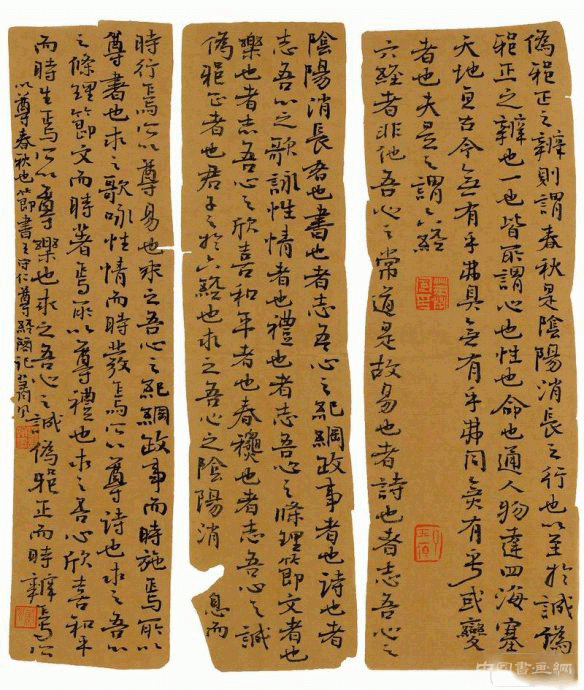 偽邪正之辯則謂春秋是陰陽消長之行也以至於誠偽
邪正之辯也一也皆所謂心也性也命也通人物達四海塞
天地亙古今無有乎弗具無有乎弗同無有乎或變
者也夫是之謂六經
六經者非他吾心之常道是故易也者詩也者志吾心之
陰陽消長者也書也者志吾心之紀綱政事者也詩也者
志吾心之歌詠性情者也禮也者志吾心之條理節文者也
樂也者志吾心之欣喜和平者也春穐也者志吾心之誠
偽邪正者也君子之於六經也求之吾心之陰陽消息而
時行焉所以尊易也求之吾心之紀綱政事而時施焉所以
尊書也求之歌咏性情而時發焉所以尊詩也求之吾心
之條理節文而時著焉所以尊禮也求之吾心欣喜和平
而時生焉所以尊樂也求之吾心之誠偽邪正而時辯焉所
以尊春秋也節書王守仁尊經閣記
中国書画網